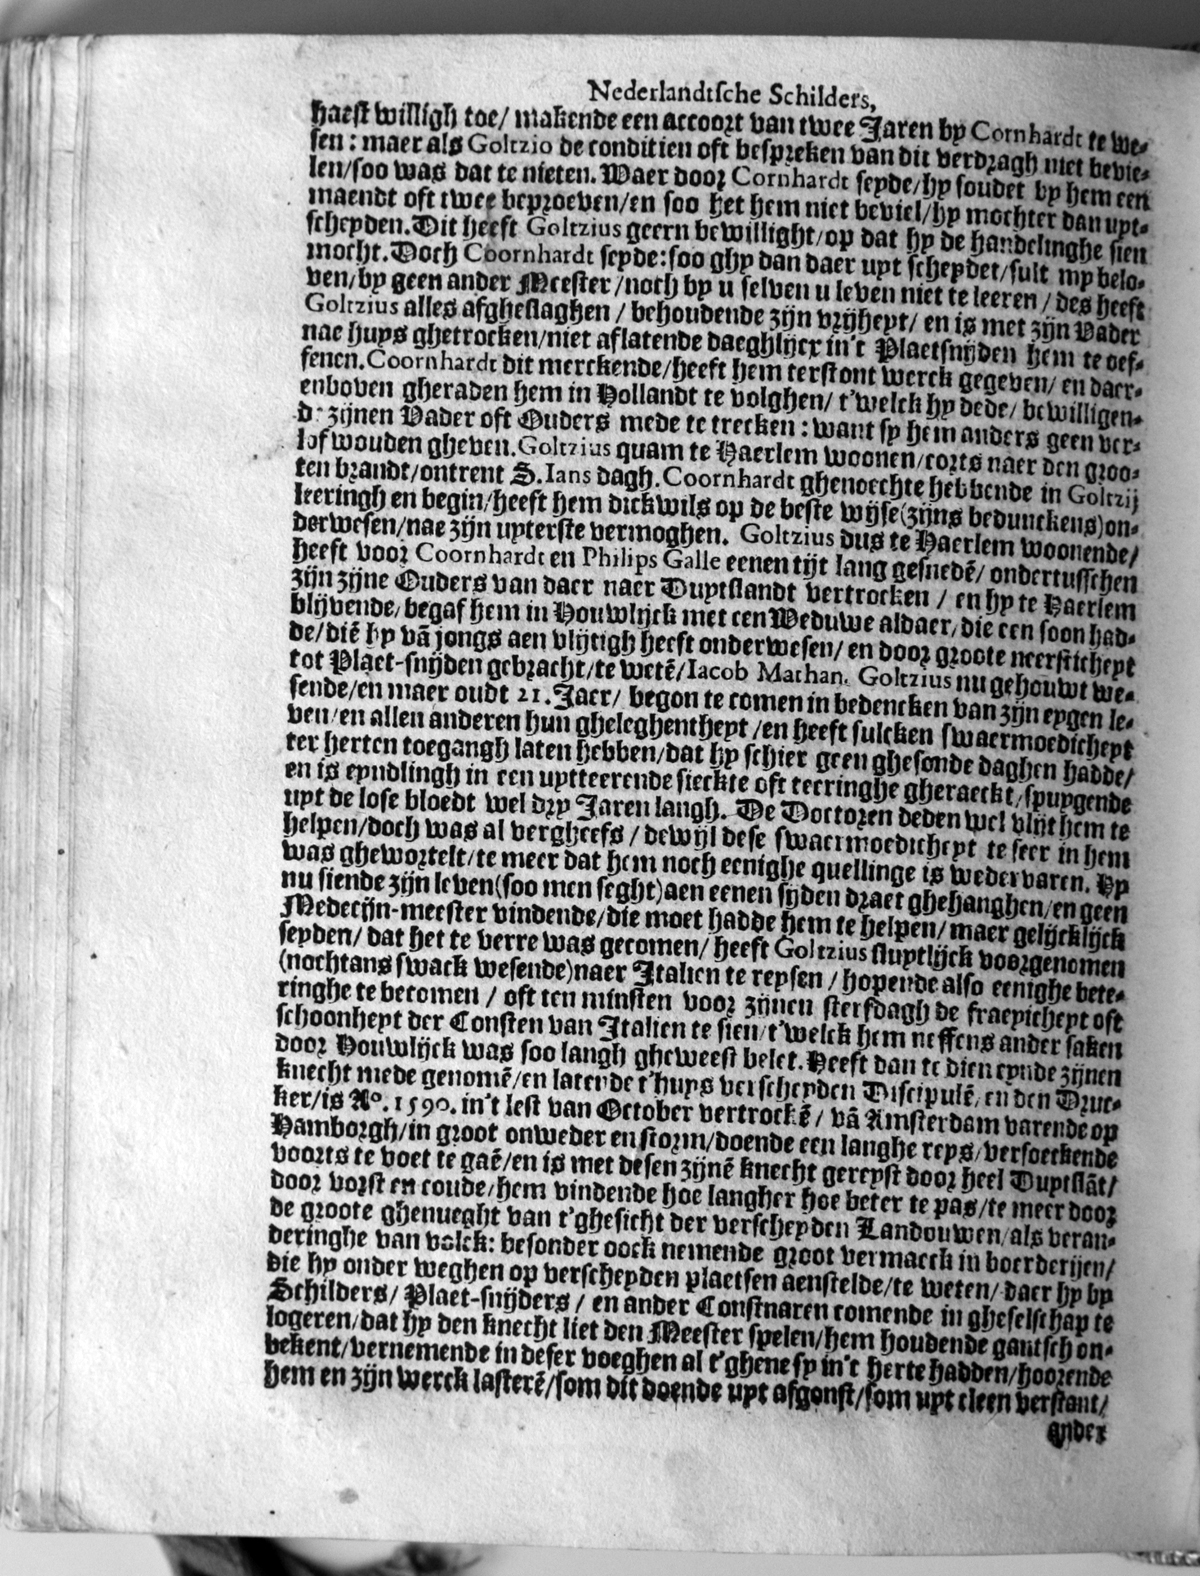 Nederlandtsche Schilders,
haest willigh toe/ makende een accoort van twee Jaren by Cornhardt te we-
sen: maer als Goltzio de conditien oft bespreken van dit verdragh niet bevie-
len/soo was dat te nieten. Waer door Cornhardt seyde/hy soudet by hem een
maendt oft twee beproeven/en soo het hem niet beviel/hy mochter dan uyt-
scheyden. Dit heeft Goltzius geern bewillight/op dat hy de handelinghe sien
mocht. Doch Coornhardt seyde: soo ghy dan daer uyt scheydet/sult my belo-
ven/by geen ander Meester/noch by u selven u leven niet te leeren/ des heeft
Goltzius alles afgheslaghen/ behoudende zijn vrijheyt/ en is met zijn Vader
nae huys ghetrocken/niet aflatende daeghlijcx in't Plaetsnijden hem te oef-
fenen. Coornhardt dit merckende/heeft hem terstont werck gegeven/ en daer-
enboven gheraden hem in Hollandt te volghen/ t'welck hy dede/ bewilligen-
de zijnen Vader oft Ouders mede te trecken: want sy hem anders geen ver-
lof wouden gheven. Goltzius quam te Haerlem woonen/corts naer den groo-
ten brandt/ontrent S. Ians dagh. Coornhardt ghenoechte hebbende in Goltzij
leeringh en begin/heeft hem dickwils op de beste wijse(zijns bedunckens)on-
derwesen/nae zijn uyterste vermoghen. Goltzius dus te Haerlem woonende/
heeft voor Coornhardt en Philips Galle eenen tijt lang gesnedē/ ondertusschen
zijn zijne Ouders van daer naer Duytslandt vertrocken/ en hy te Haerlem
blijvende, begaf hem in Houwlijck met een Weduwe aldaer, die een soon had-
de/diē hy vā jongs aen vlijtigh heeft onderwesen/ en door groote neersticheyt
tot Plaet-snijden gebracht/te wetē/Iacob Mathan. Goltzius nu gehouwt we-
sende/en maer oudt 21. Jaer/ begon te comen in bedencken van zijn eygen le-
ven/en allen anderen hun gheleghentheyt/en heeft sulcken swaermoedicheyt
ter herten toegangh laten hebben/dat hy schier geen ghesonde daghen hadde/
en is eyndlingh in een uytteerende sieckte oft teeringhe gheraeckt/spuygende
uyt de lose bloedt wel dry Jaren langh. De Doctoren deden wel vlijt hem te
helpen/doch was al vergheefs/ dewijl dese swaermoedicheyt te seer in hem
was ghewortelt/te meer dat hem noch eenighe quellinge is wedervaren. Hy
nu siende zijn leven(soo men seght)aen eenen sijden draet ghehanghen/en geen
Medecijn-meester vindende/die moet hadde hem te helpen/ maer gelijcklijck
seyden/ dat het te verre was gecomen/ heeft Goltzius sluytlijck voorgenomen
(nochtans swack wesende)naer Italien te reysen/ hopende also eenighe bete-
ringhe te becomen/ oft ten minsten voor zijnen sterfdagh de fraeyicheyt oft
schoonheyt der Consten van Italien te sien/t'welck hem neffens ander saken
door Houwlijck was soo langh gheweest belet. Heeft dan te dien eynde zijnen
knecht mede genomē/en latende t'huys verscheyden Discipulē, en den Druc-
ker/is Aº. 1590. in't lest van October vertrockē/ vā Amsterdam varende op
Hamborgh/in groot onweder en storm/doende een langhe reys/versoeckende
voorts te voet te gaē/en is met desen zijnē knecht gereyst door heel Duytslāt/
door vorst en coude/hem vindende hoe langher hoe beter te pas/te meer door
de groote ghenueght van t'ghesicht der verscheyden Landouwen/als veran-
deringhe van volck: besonder oock nemende groot vermaeck in boerderijen/
die hy onder weghen op verscheyden plaetsen aenstelde/te weten/ daer hy by
Schilders/ Plaet-snijders/ en ander Constnaren comende in gheselschap te
logeren/dat hy den knecht liet den Meester spelen/hem houdende gantsch on-
bekent/vernemende in deser voeghen al t'ghene sy in't herte hadden/hoorende
hem en zijn werck lasterē/som dit doende uyt afgonst/som uyt cleen verstant/
ander